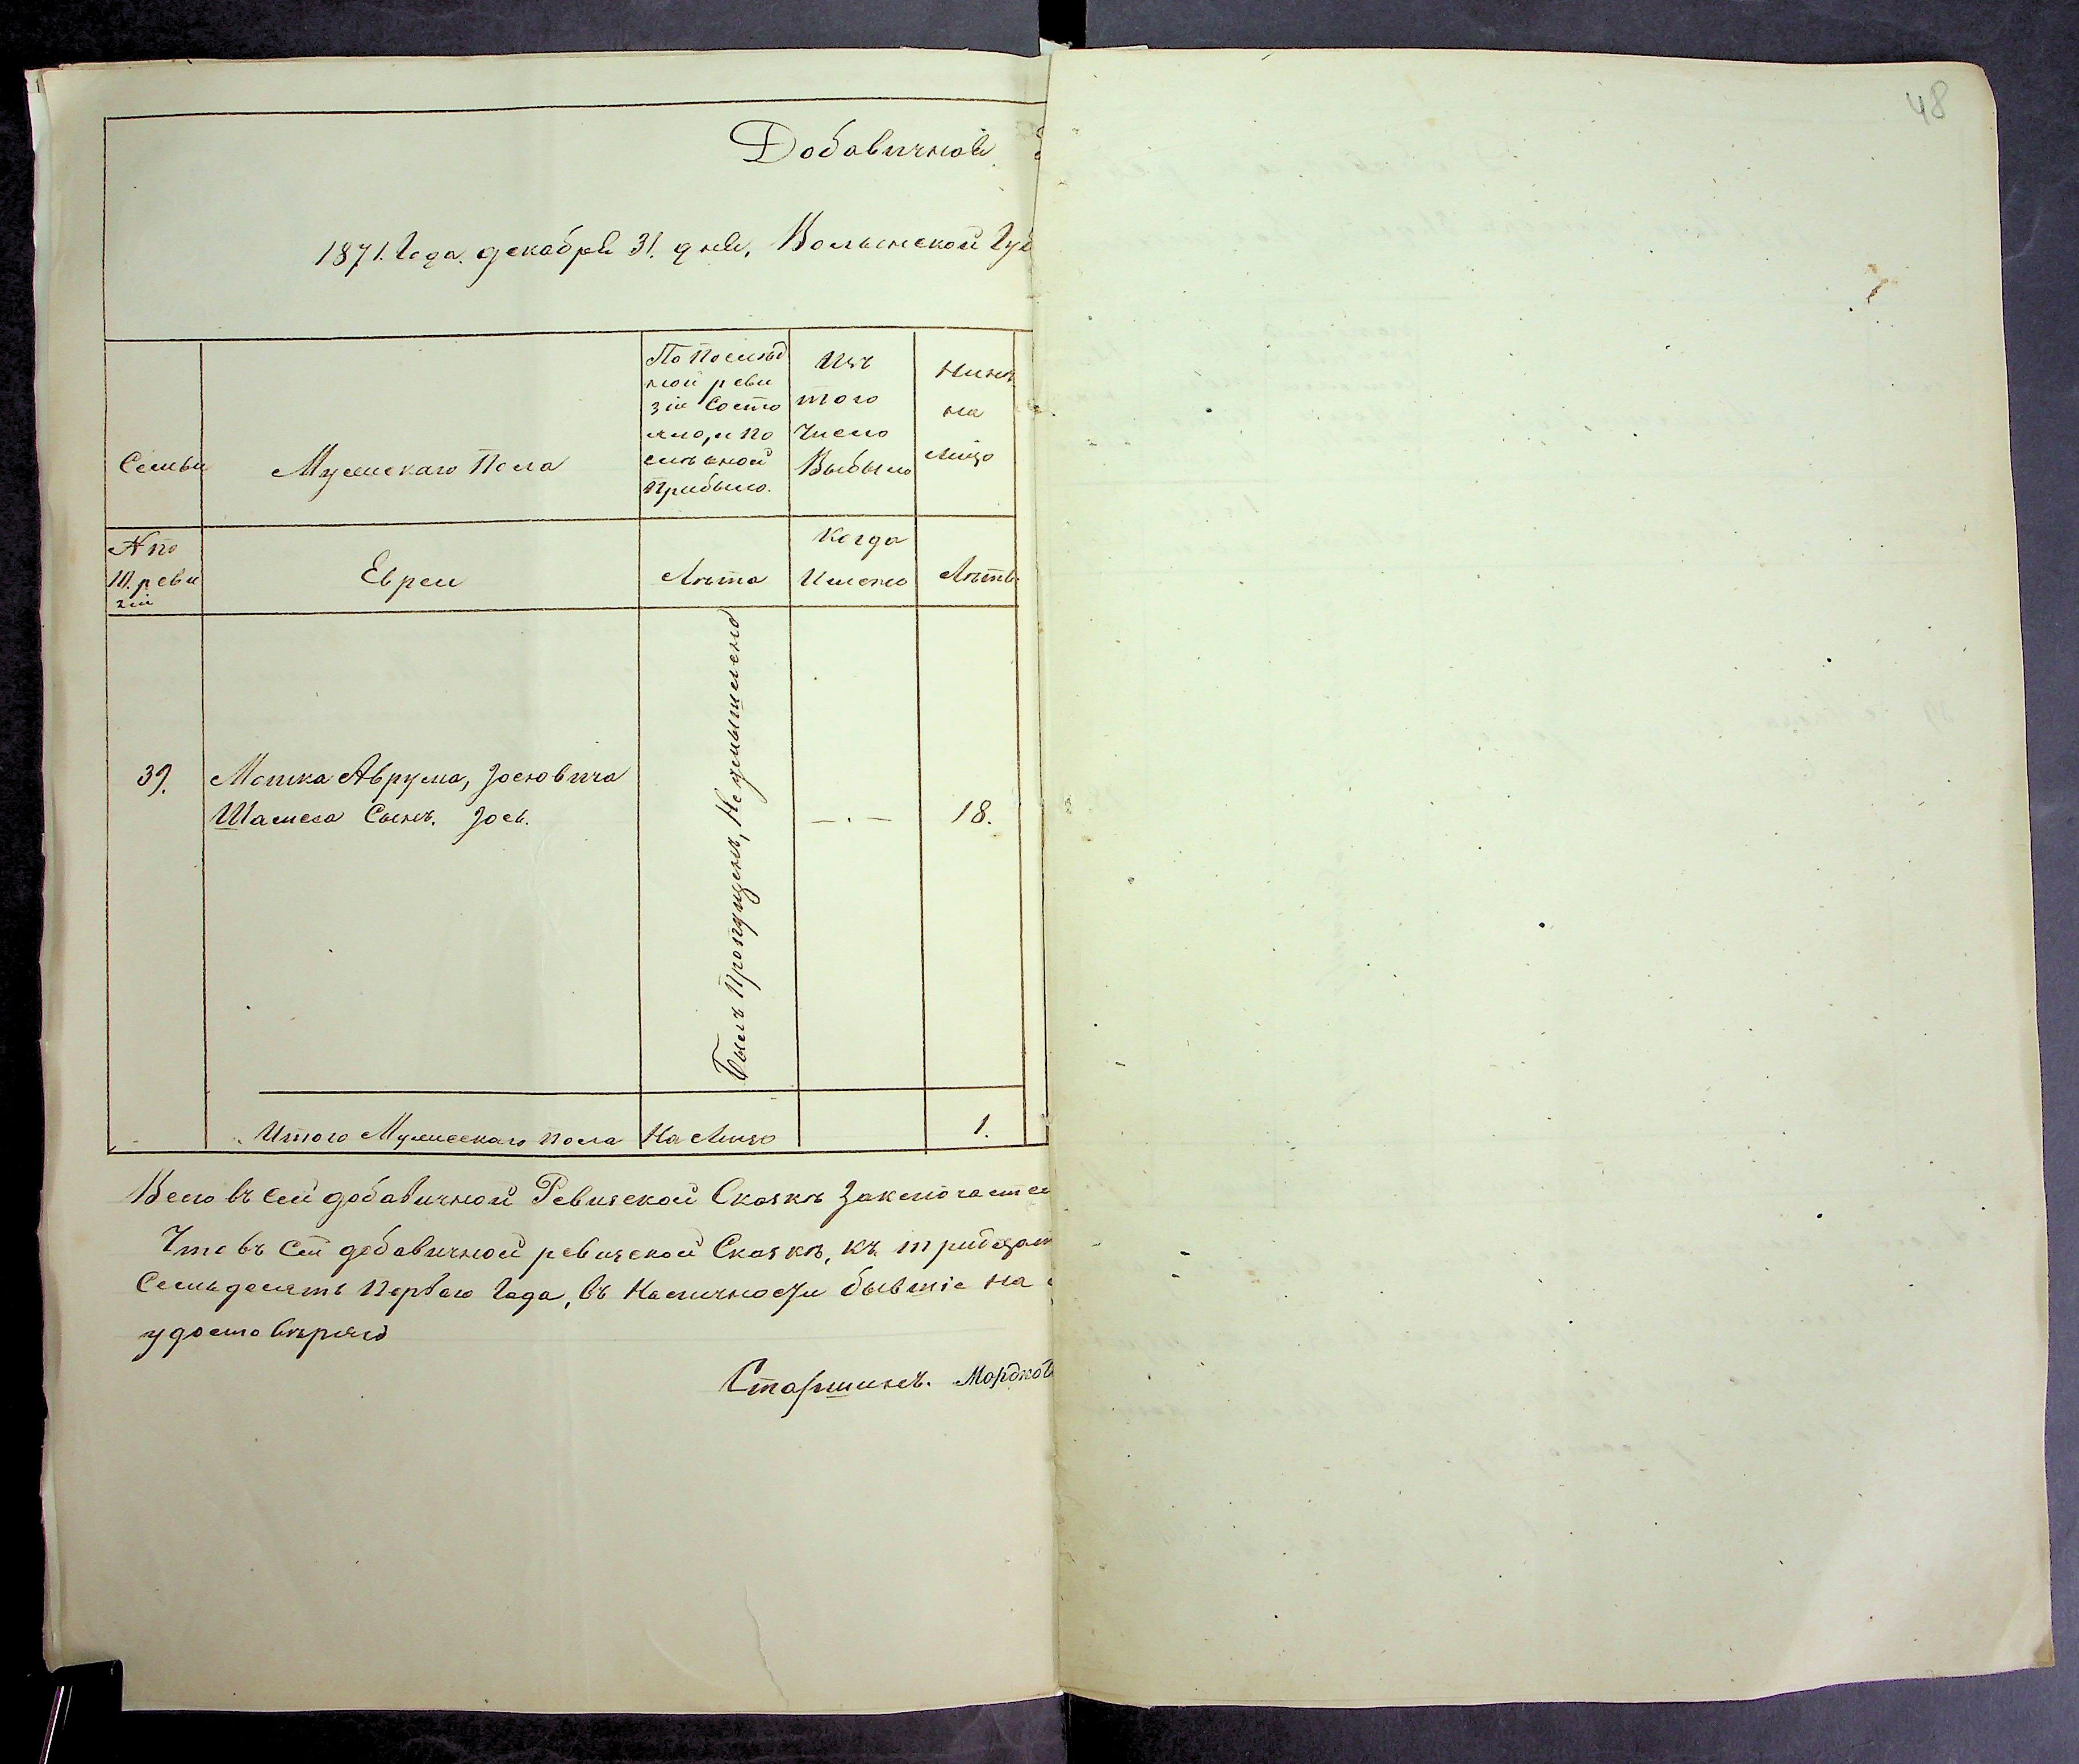 48
Добавичной
1871. Года. декабря 31. дня, Волынской Губ
Семьи
Мужескаго Пола
По послѣд
ней реви
зіи Состо
яло, и по
слѣ оной
Прибыло.
Изъ
того
Число
Выбыло
Нинѣ
на
лицо
№ по
10. реви
зіи
Евреи
Лѣта
Когда
Именно
Лѣта
39.
Мошка Аврума, Госиовича
Шамеса Сынъ. Госъ.
Былъ Пропущенъ, Неумышлено
— . —
18.
Итого Мужескаго пола
На Лицо
1.
Всего въ сей добавичной Ревизской Сказкѣ Заключается
Что въ Сей добавичной ревизской Сказкѣ, къ тридцат
Семьдесятъ Перваго Года, въ Наличности бывшіе на
удостовѣряю
Старшинъ. Мордко